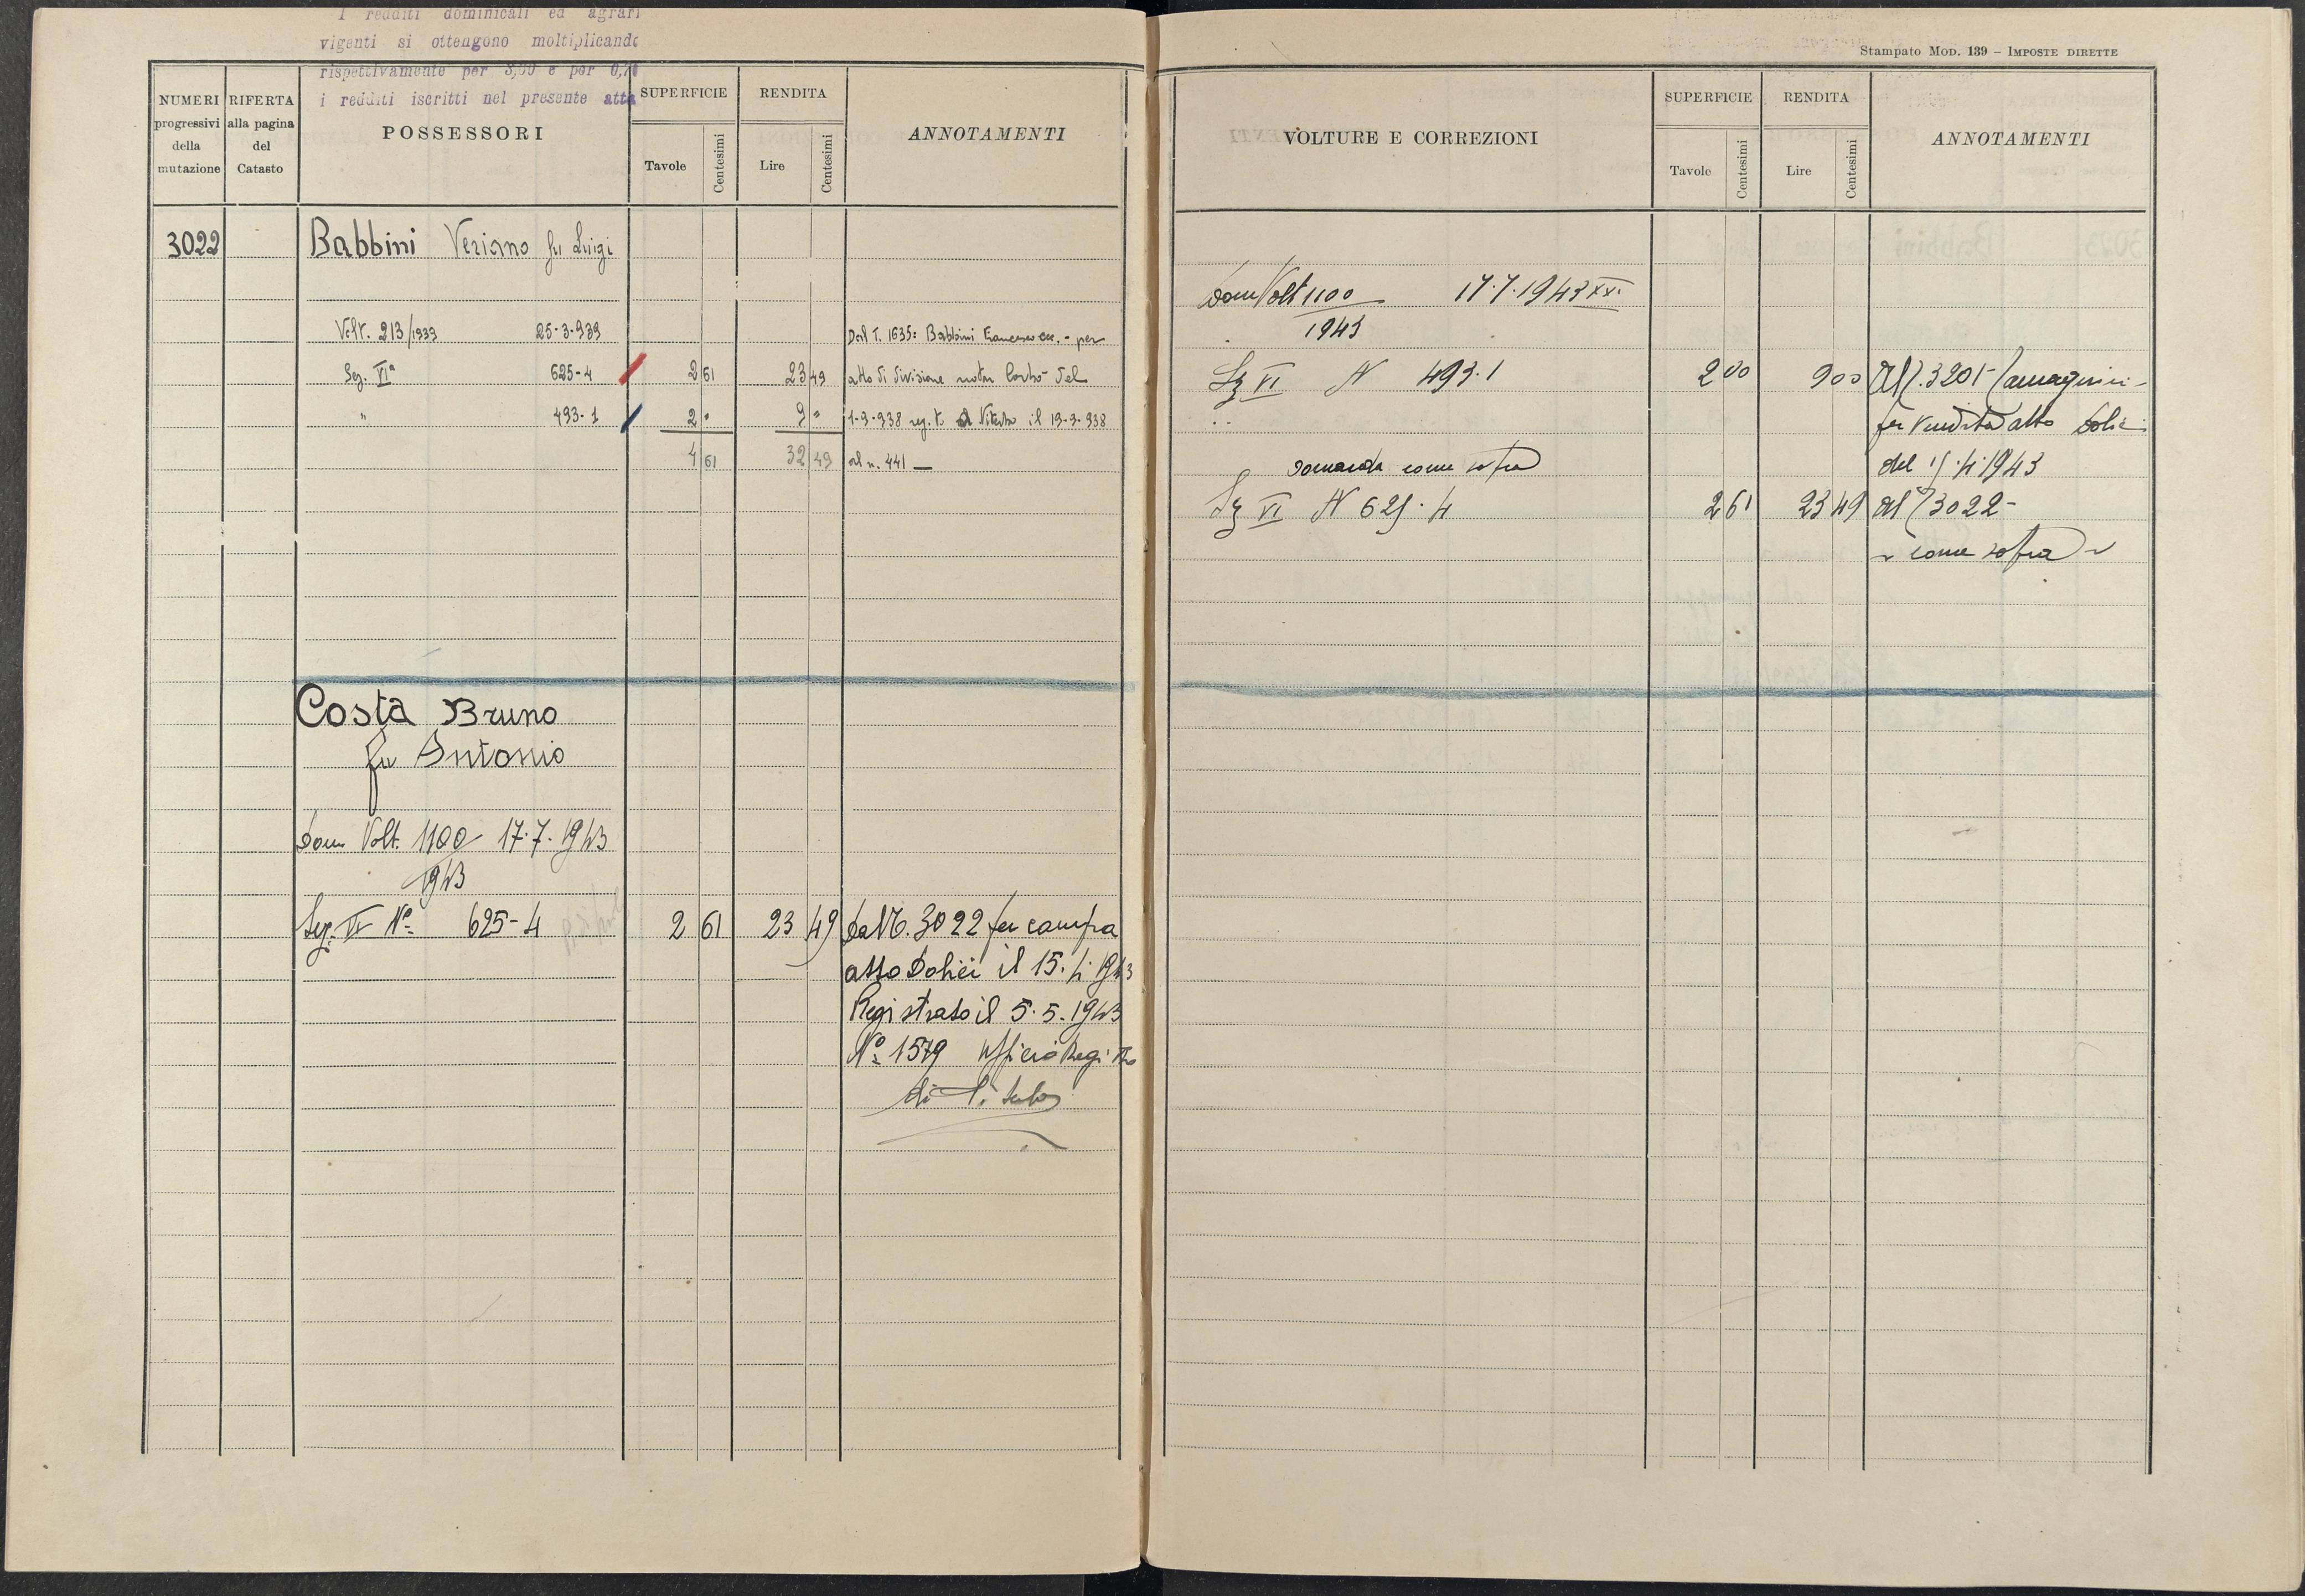 I redditi dominicali ed agrari
vigenti si ottengono moltiplicando
rispettivamente per 3,00 e per 0,70
i redditi iscritti nel presente atto
NUMERI progressivi della mutazione
RIFERTA alla pagina del Catasto
POSSESSORI
SUPERFICIE
Tavole Centesimi
RENDITA
Lire Centesimi
ANNOTAMENTI
3022 Babbini Veriano fu Luigi
Volt. 213/1939 25-3-939 Dal T. 1635: Babbini Francesco ecc. - per
Sez. VIª 625-4 2 61 23 49 atto di divisione notar del
" 493-1 2 " 9 " 1-9-938 reg. to a Viterbo il 19-9-938
4 61 32 49 al n. 441
Costa Bruno
fu Antonio
Dom Volt. 1100 17.7.1943
1943
Sez. VI Nº 625-4 2 61 23 49 Dal T. 3022 per compra
atto Dolici il 15.4.1943
Registrato il 5.5.1943
Nº 1579 Ufficio Registro
di Viterbo
Stampato Mod. 139 – Imposte dirette
VOLTURE E CORREZIONI
SUPERFICIE
Tavole Centesimi
RENDITA
Lire Centesimi
ANNOTAMENTI
Dom Volt 1100 17.7.1943 XXI
1943
Sz VI N 493.1 2 00 9 00 Al T. 3201
per vendita atto Dolici
del 15.4.1943
Domanda come sopra
Sz VI N 625.4 2 61 23 49 al T 3022-
come sopra